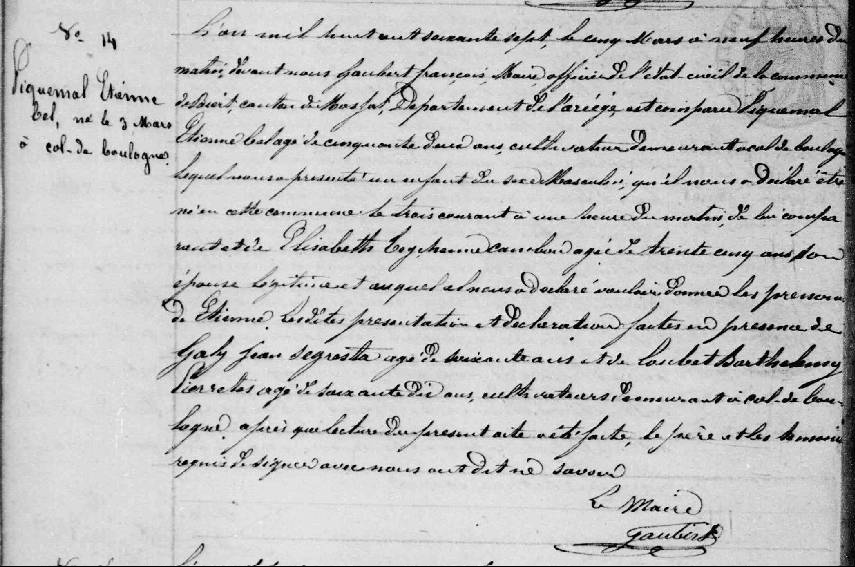 No 14
Piquemal Etienne
bel, né le 3 Mars
à col-de boulogne.
L'an mil huit cent soixante sept, le cinq Mars à neuf heures du
matin, devant nous Gaubert françois, Maire, officier de l'état civil de la commune
de canton de Département de l'ariège, est comparu Piquemal
Etienne bel agé de cinquante deux ans, cultivateur demeurant a col de boulogne
lequel nous a presenté un enfant du sexe Masculin, qu'il nous a déclaré être
né en cette commune le trois courant à une heure du matin, de lui compa
rant et de Elisabeth agée de trente cinq ans son
épouse legitime et auquel il nous a déclaré vouloir donner les prenoms
de Etienne. Lesdites presentation et declaration faites en presence de
Galy Jean agé de soixante ans et de Loubet Barthelemy
agé de soixante dix ans, cultivateurs demeurant à col-de bou-
logne. après que lecture du present acte a été faite, le père et les temoins
requis de signer avec nous ont dit ne savoir
Le Maire
Gaubert